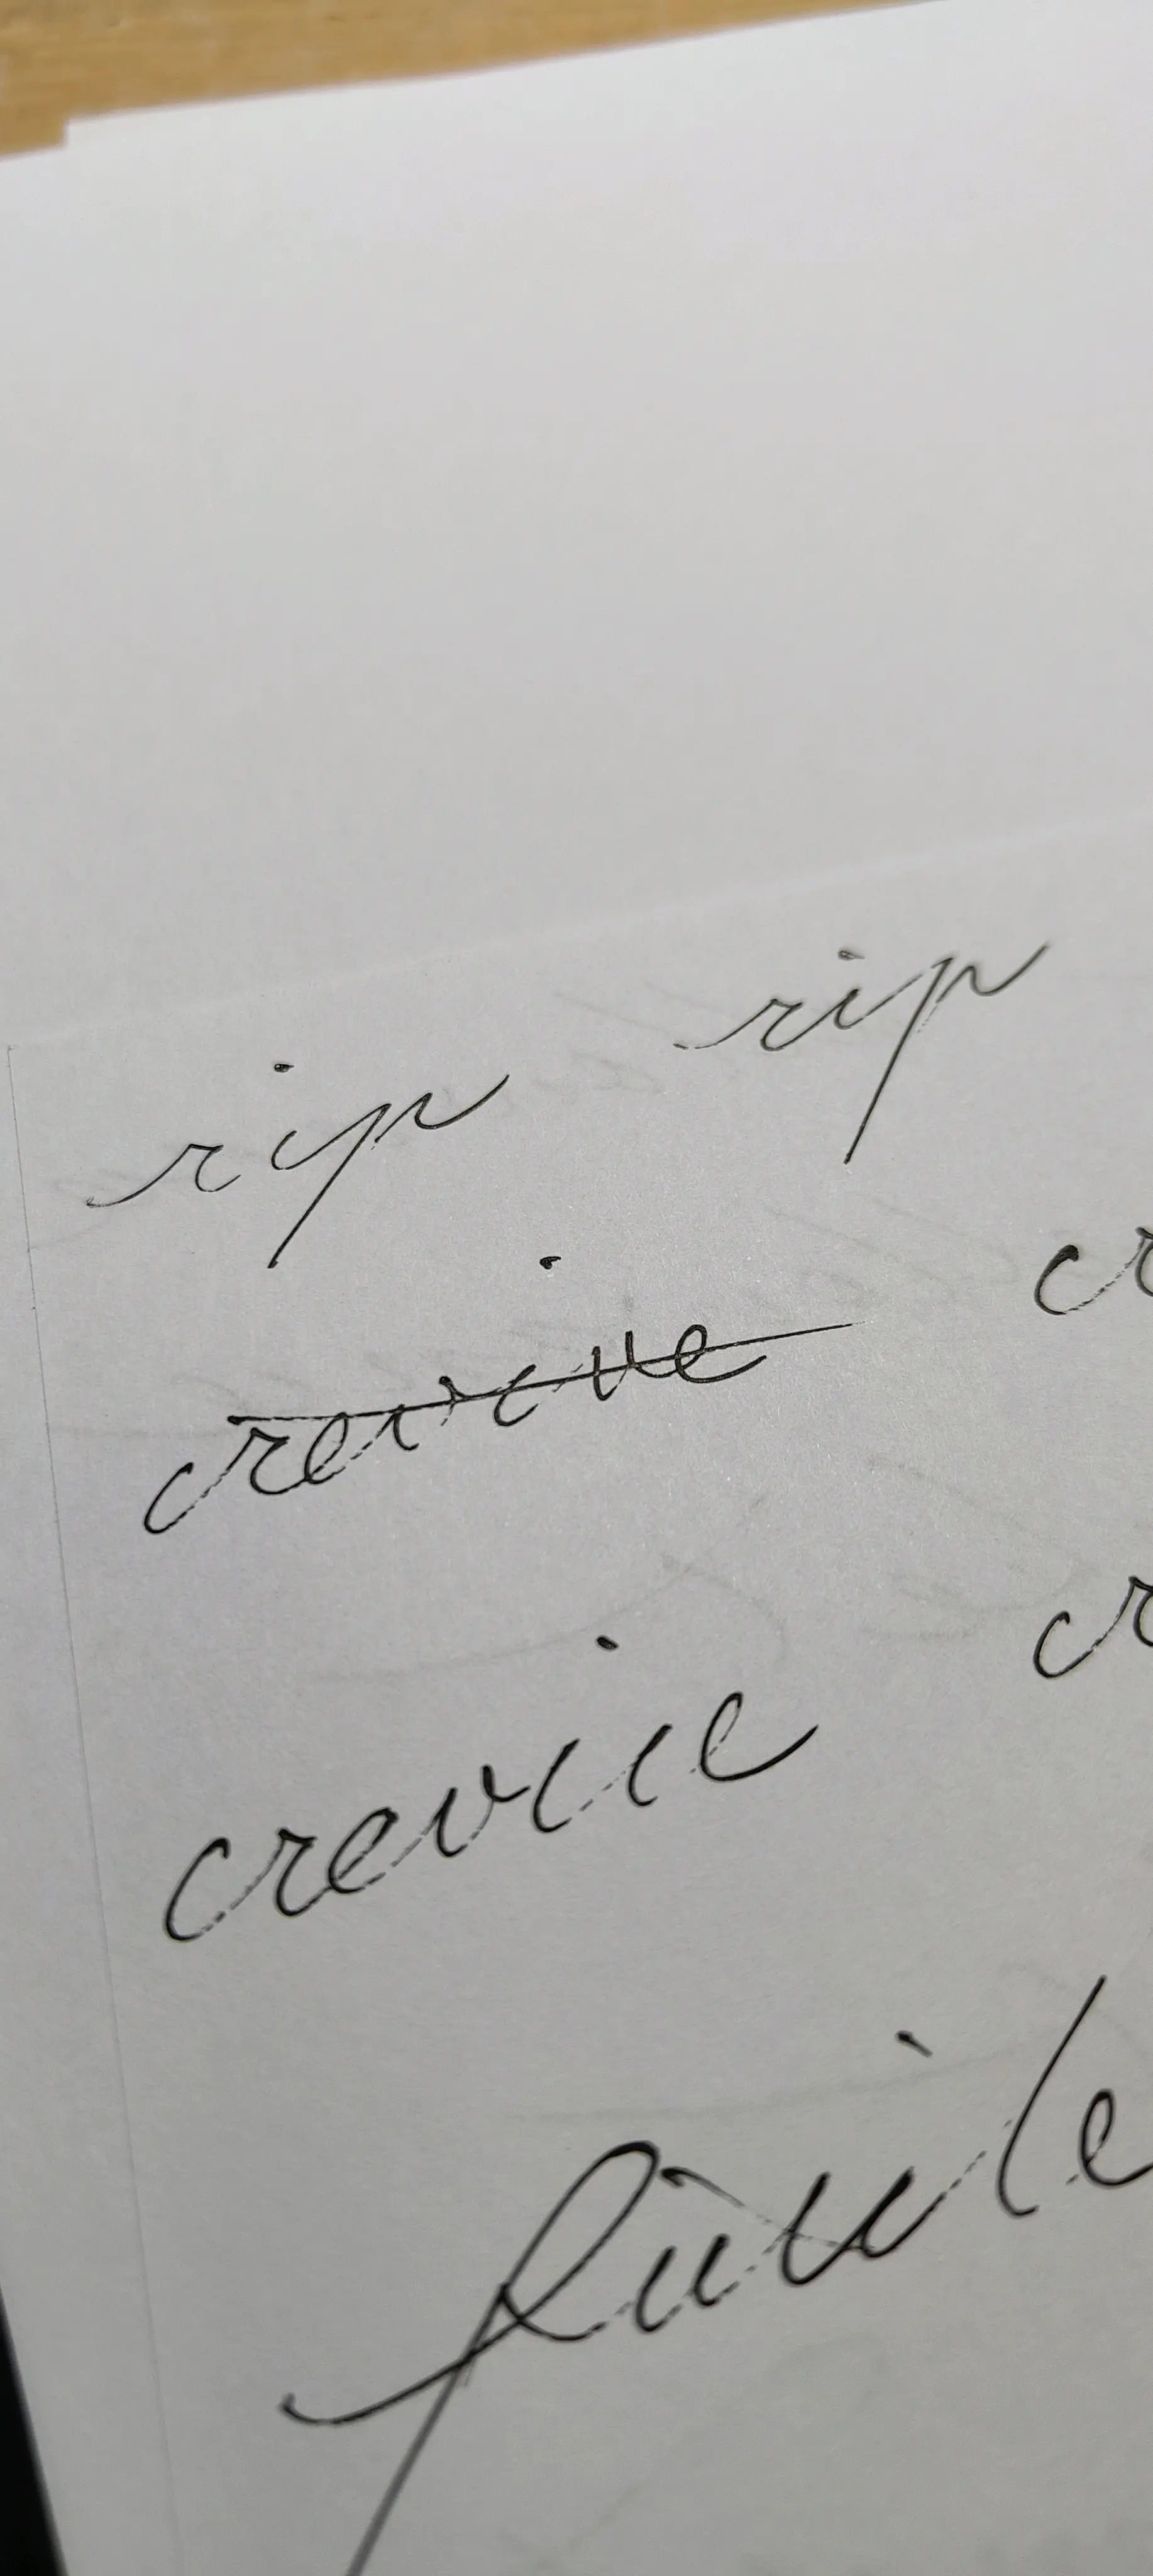 rip rip
crevice cr
crevice cr